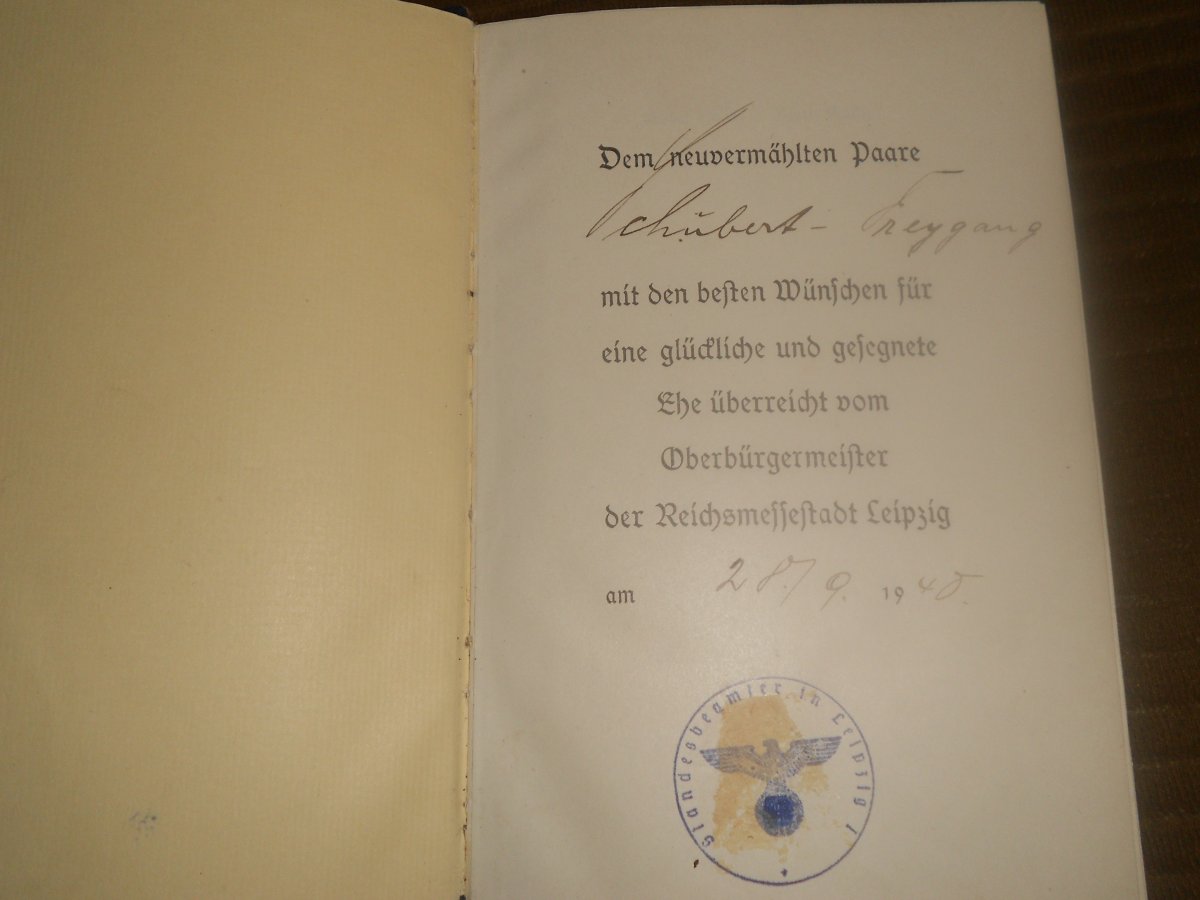 Dem neuvermählten Paare
Schubert - Freygang
mit den besten Wünschen für
eine glückliche und gesegnete
Ehe überreicht vom
Oberbürgermeister
der Reichsmessestadt Leipzig
am 28./9. 1940.
Standesbeamter in Leipzig I